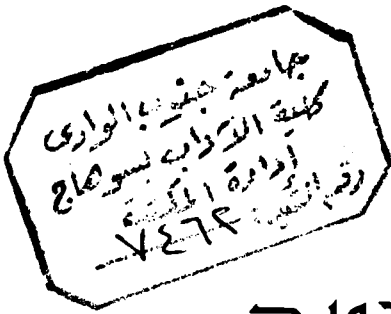 جامعة جنوب الوادى
كلية الآداب بسوهاج
إدارة المكتبة
رقم ٧٤٦٢